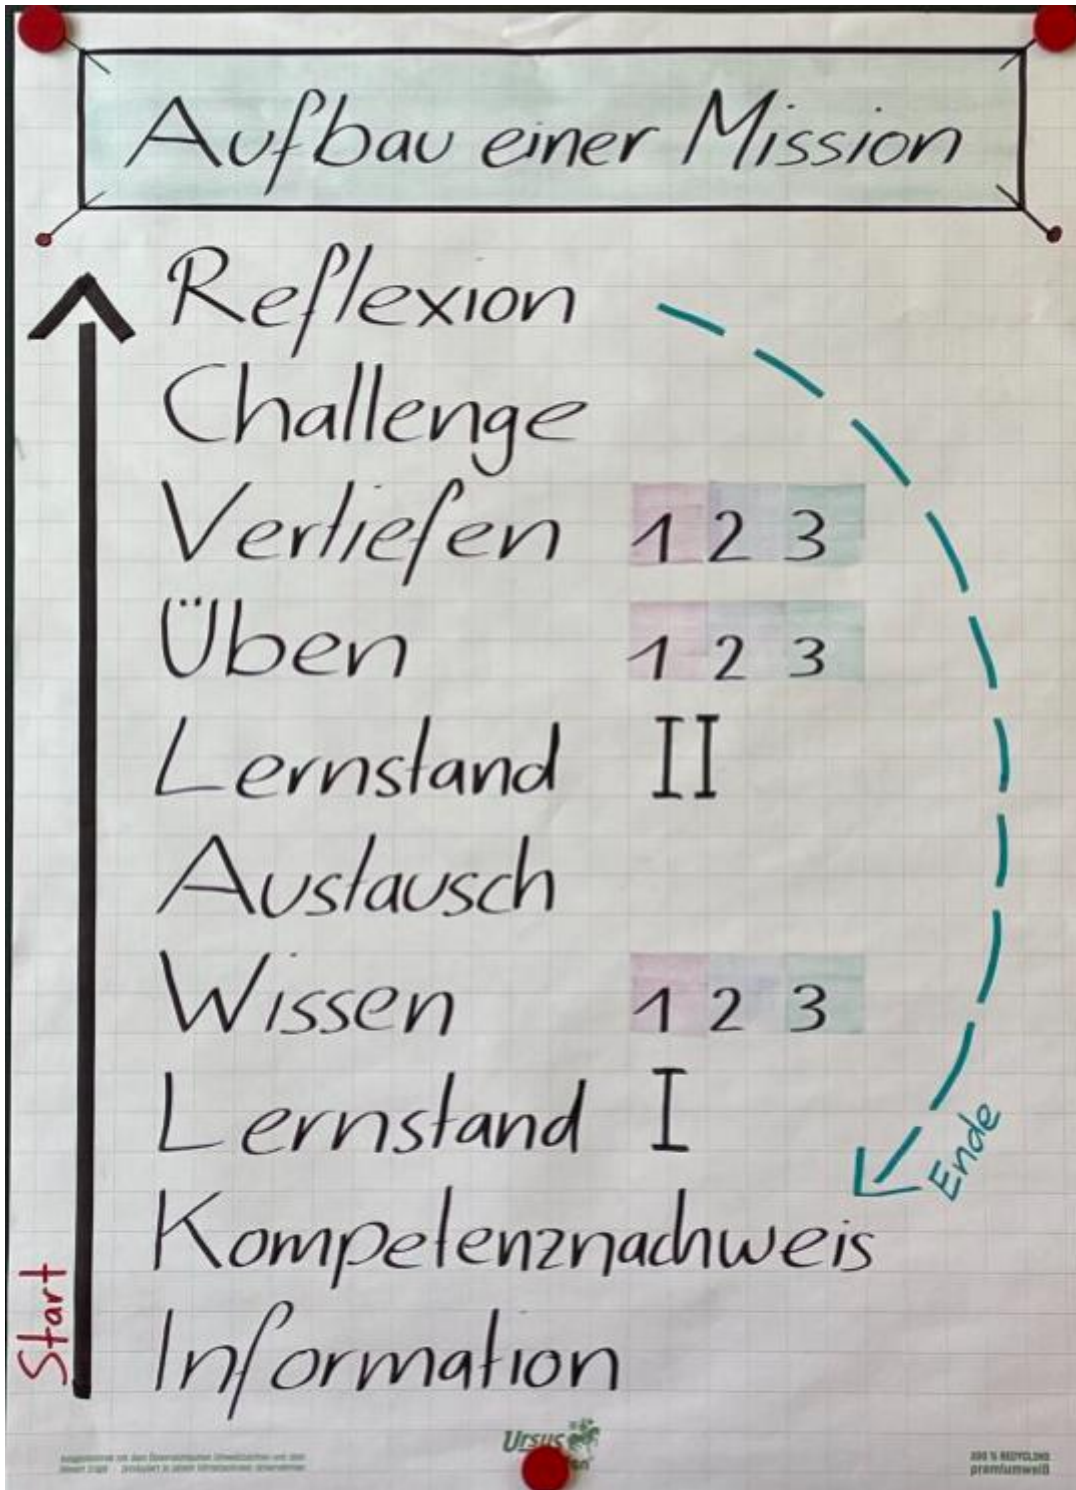 Aufbau einer Mission
Reflexion
Challenge
Vertiefen 1 2 3
Üben 1 2 3
Lernstand II
Austausch
Wissen 1 2 3
Lernstand I
Ende
Kompetenznachweis
Start
Information
Ursus
100 % RECYCLING
premiumweiß